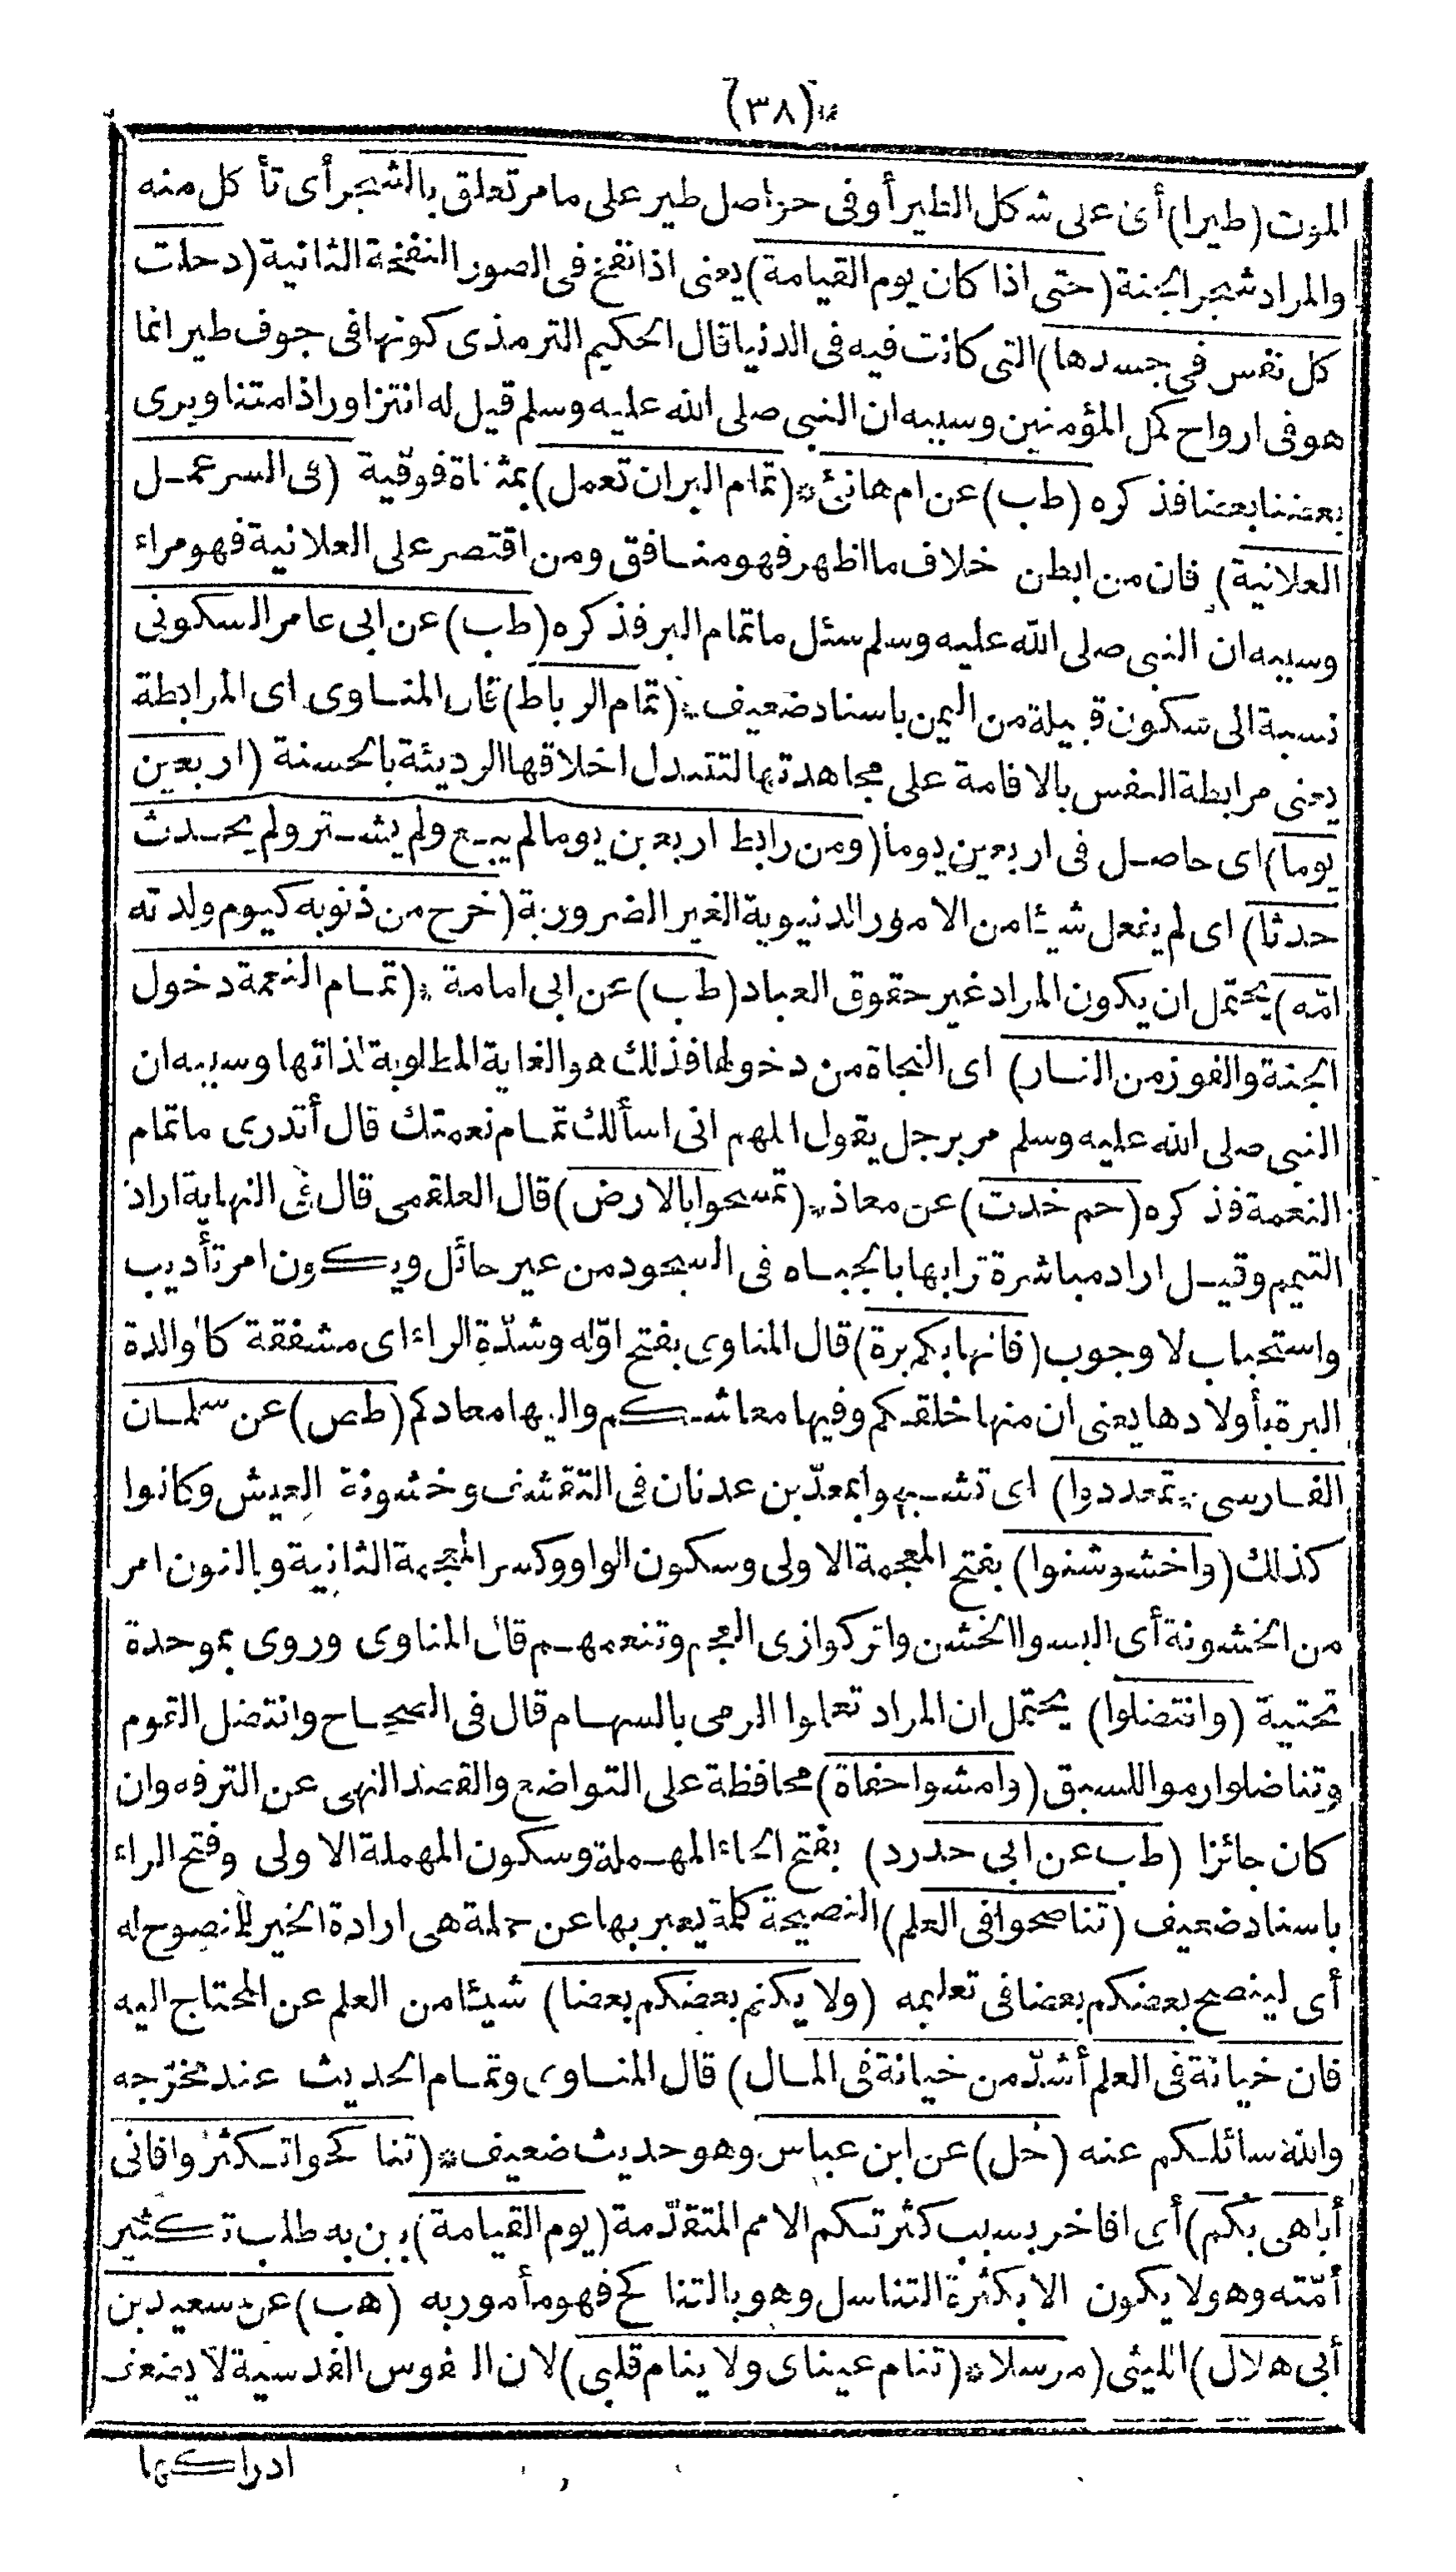 (٣٨)
الموت (طيرا) أى على شكل الطير أوفى حواصل طير على مامر تعلق بالشجر أى تأكل منه
والمراد شجر الجنة (حتى اذا كان يوم القيامة) يعنى اذا نفخ فى الصور النفخة الثانية (دخلت
كل نفس فى جسدها) التى كانت فيه فى الدنيا قال الحكيم الترمذى كونها فى جوف طير انما
هو فى ارواح كمل المؤمنين وسببه ان النبى صلى الله عليه وسلم قيل له انتزاور اذا متنا ويرى
بعضنا بعضا فذكره (طب) عن ام هانئ * (تمام البر ان تعمل) بمثناة فوقية (فى السر عمل
العلانية) فان من ابطن خلاف ما اظهر فهو منافق ومن اقتصر على العلانية فهو مراء
وسببه ان النبى صلى الله عليه وسلم سئل ما تمام البر فذكره (طب) عن ابى عامر السكونى
نسبة الى سكون قبيلة من اليمن باسناد ضعيف * (تمام الرباط) قال المناوى اى المرابطة
يعنى مرابطة النفس بالاقامة على مجاهدتها لتتبدل اخلاقها الرديئة بالحسنة (اربعين
يوما) اى حاصل فى اربعين يوما (ومن رابط اربعين يوما لم يبع ولم يشتر ولم يحدث
حدثا) اى لم يفعل شيئا من الامور الدنيوية الغير الضرورية (خرج من ذنوبه كيوم ولدته
امّه) يحتمل ان يكون المراد غير حقوق العباد (طب) عن ابى امامة * (تمام النعمة دخول
الجنة والفوز من النار) اى النجاة من دخولها فذلك هو الغاية المطلوبة لذاتها وسببه ان
النبى صلى الله عليه وسلم مر برجل يقول اللهم انى اسألك تمام نعمتك قال أتدرى ما تمام
النعمة فذكره (حم خدت) عن معاذ * (تمسحوا بالارض) قال العلقمى قال فى النهاية اراد
التيمم وقيل اراد مباشرة ترابها بالجباه فى السجود من غير حائل ويكون امر تأديب
واستحباب لا وجوب (فانها بكم برة) قال المناوى بفتح اوّله وشدّة الراء اى مشفقة كالوالدة
البرة بأولادها يعنى ان منها خلقكم وفيها معاشكم واليها معادكم (طص) عن سلمان
الفارسى * تمعددوا) اى تشبهوا بمعدّ بن عدنان فى التقشف وخشونة العيش وكانوا
كذلك (واخشوشنوا) بفتح المعجمة الاولى وسكون الواو وكسر المعجمة الثانية وبالنون امر
من الخشونة أى البسوا الخشن واتركوا زى العجم وتنعمهم قال المناوى وروى بموحدة
تحتية (وانتضلوا) يحتمل ان المراد تعلموا الرمى بالسهام قال فى الصحاح وانتضل القوم
وتناضلوا رموا للسبق (وامشوا حفاة) محافظة على التواضع والقصد النهى عن الترفه وان
كان جائزا (طب عن ابى حدرد) بفتح الحاء المهملة وسكون المهملة الاولى وفتح الراء
باسناد ضعيف (تناصحوا فى العلم) النصيحة كلمة يعبر بها عن جملة هى ارادة الخير للمنصوح له
أى لينصح بعضكم بعضا فى تعليمه (ولا يكتم بعضكم بعضا) شيئا من العلم عن المحتاج اليه
فان خيانة فى العلم أشدّ من خيانة فى المال) قال المناوى وتمام الحديث عند مخرّجه
والله سائلكم عنه (حل) عن ابن عباس وهو حديث ضعيف * (تناكحوا تكثروا فانى
أباهى بكم) أى افاخر بسبب كثرتكم الامم المتقدّمة (يوم القيامة) بين به طلب تكثير
أمّته وهو لا يكون الا بكثرة التناسل وهو بالتناكح فهو مأمور به (هب) عن سعيد بن
أبى هلال) الليثى (مرسلا * (تنام عيناى ولا ينام قلبى) لان النفوس القدسية لا يضعف
ادراكها